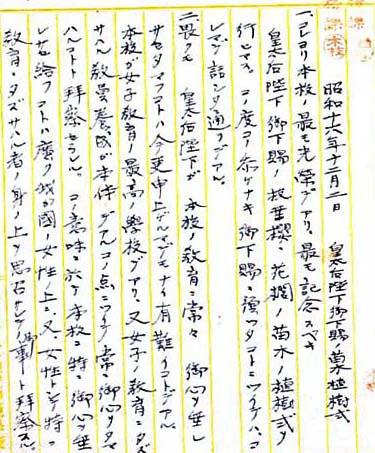 昭和十六年十二月二日　皇太后陛下御下賜ノ苗木植樹式
一、コレヨリ本校ノ最モ光栄デアリ、最モ記念スベキ
皇太后陛下御下賜ノ枝垂櫻ノ花櫚ノ苗木ノ植樹式ヲ
行ヒマス、コノ度コノ忝ケナキ御下賜ニ預ツタコトニツイテハ、コ
レマデ話シタ通リデアル。
二、畏クモ　皇太后陛下ガ　本校ノ教育ニ常々　御心ヲ垂レ
サセタマフコトハ今更申上ゲルマデモナク有難イコトデアル。
本校ガ女子教育ノ最高ノ学校デアリ、又女子ノ教育ニタヅ
サハル教員養成ガ本体デアルコノ点ニツキ常ニ御心ヲタマ
ハルコトト拝察セラレル。コノ意味ニ於テ本校ニ特ニ御心ヲ垂
レ給フコトハ廣ク我ガ國ノ女性ノ上ニ、又女性トシテ特ニ
教育ニタズサハル者ノ身ノ上ヲ思召サレテノ御事ト拝察スル。